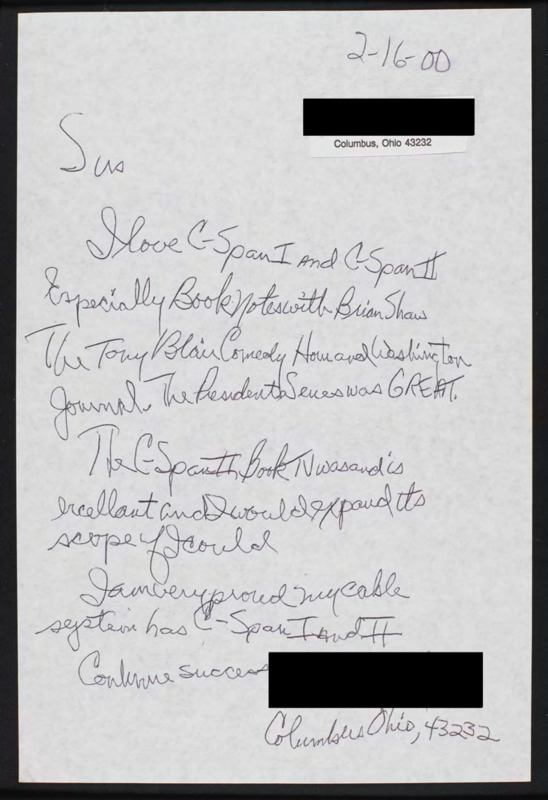 2-16-00
Columbus, Ohio 43232
Sirs
I love C-Span I and C-Span II
Especially Book notes with Brian Shaw
The Tony Blair Comedy Hour and Washington
Journal. The Presidents Series was GREAT.
The C-Span II Book TV was and is
excellant and I would expand its
scope if I could
I am very proud my cable
system has C-Span I and II
Continue success
Columbus Ohio, 43232